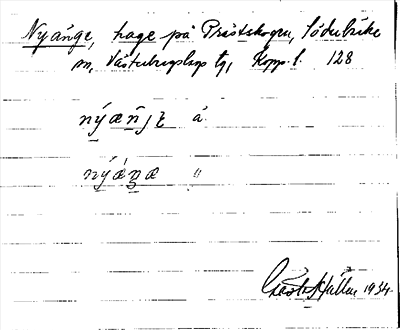 Nyänge, hage på Prästskogen, Söderbärke
sn, Västerbergslags tg, Kopp. l. 128
nýæṉjɛ å.
nýæ´ṉæ "
Hallen 1934.